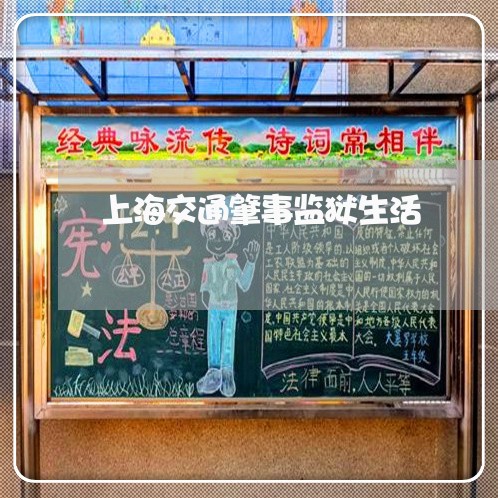 经典咏流传 诗词常相伴
上海交通肇事监狱生活
12.4
宪法
公平 公正
总章程
中华人民共和国
是工人阶级领导的,以
工农联盟为基础的
人民民主专政的社会主义
国家,社会主义制度是中
华人民共和国的根本制
度,中国共产党领导是中
国特色社会主义最本
质的特征,禁止任何
组织或者个人破坏社会
主义制度,中华人民共和
国的一切权利属于人民,
人民行使国家权力的机
关是全国人民代表大会
和地方各级人民代表
大会。
五年级
法律面前,人人平等